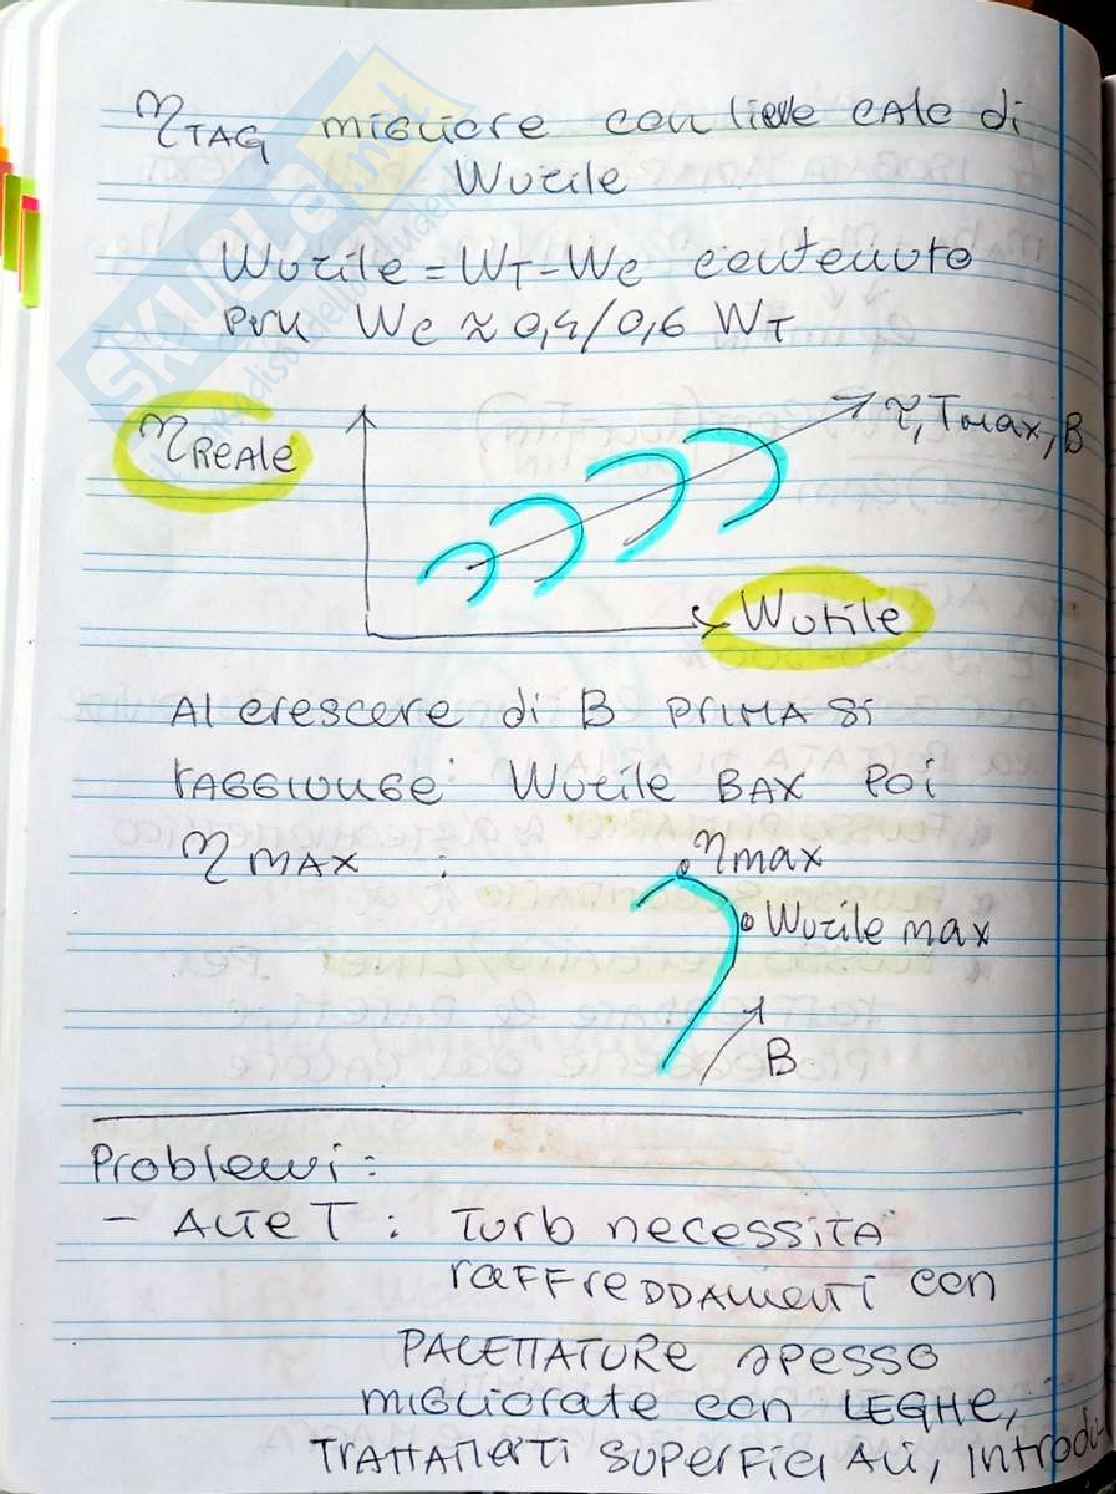 ηTAG migliore con lieve calo di
Wutile
Wutile = WT - Wc contenuto
perché Wc ≈ 0,4/0,6 WT
ηReale
τ, Tmax, β
Wutile
Al crescere di β prima si
raggiunge: Wutile BAX poi
η MAX :
ηmax
Wutile max
β
Problemi:
- Alte T : Turb necessità
raffreddamenti con
PALETTATURE spesso
migliorate con LEGHE,
TRATTAMENTI SUPERFICIALI, introd
SKUOLA.net